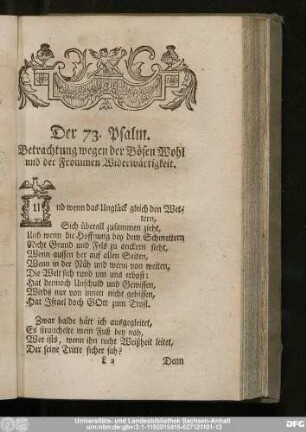 Der 73. Psalm.
Betrachtung wegen der Bösen Wohl
und der Frommen Widerwärtigkeit.
Und wenn das Unglück gleich den Wet-
tern,
Sich überall zusammen zieht,
Und wenn die Hoffnung bey dem Schmettern
Nicht Grund und Fels zu anckern sieht,
Wenn aussen her auf allen Seiten,
Wenn in der Näh und wenn von weiten,
Die Welt sich rund um uns erboßt:
Hat dennoch Unschuld und Gewissen,
Wirds nur von innen nicht gebissen,
Hat Israel doch GOtt zum Trost.
Zwar balde hätt ich ausgegleitet,
Es strauchelte mein Fuß bey nah,
Wer ists, wenn ihn nicht Weißheit leitet,
Der seine Tritte sicher sah?
L 2
Denn
Universitäts- und Landesbibliothek Sachsen-Anhalt
urn:nbn:de:gbv:3:1-1192015415-627121101-13
DFG